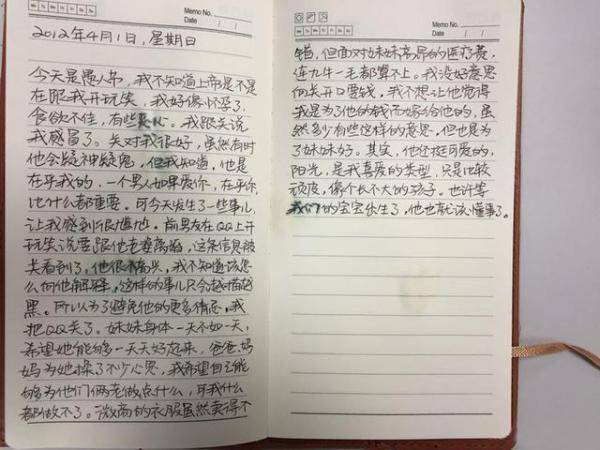 Memo No.
Date / /
2012年4月1日,星期日
今天是愚人节,我不知道上帝是不是
在跟我开玩笑,我好像怀孕了,
食欲不佳,有些恶心。我跟关说
我感冒了。关对我很好,虽然有时
他会疑神疑鬼,但我知道,他是
在乎我的,一个男人如果爱你,在乎你
比什么都重要。可今天发生了一些事儿,
让我感到很尴尬。前男友在QQ上开
玩笑说要跟他老婆离婚,这条信息被
关看到了,他很不高兴,我不知道该怎
么向他解释,这样的事儿只会越描越
黑。所以为了避免他的更多猜忌,我
把QQ关了。妹妹身体一天不如一天,
希望她能够一天天好起来,爸爸、妈
妈为她操了不少心思,我希望自己能
够为他们俩老做点什么,可我什么
都做不了。微商的衣服虽然卖得不
Memo No.
Date / /
错,但面对妹妹高昂的医疗费,
连九牛一毛都算不上。我没好意思
向关开口要钱,我不想让他觉得
我是为了他的钱而嫁给他的,虽
然多少有些这样的意思,但也是为
了妹妹好。其实,他还挺可爱的,
阳光,是我喜爱的类型,只是比较
顽皮,像个长不大的孩子。也许等
我们的宝宝出生了,他也就该懂事了。